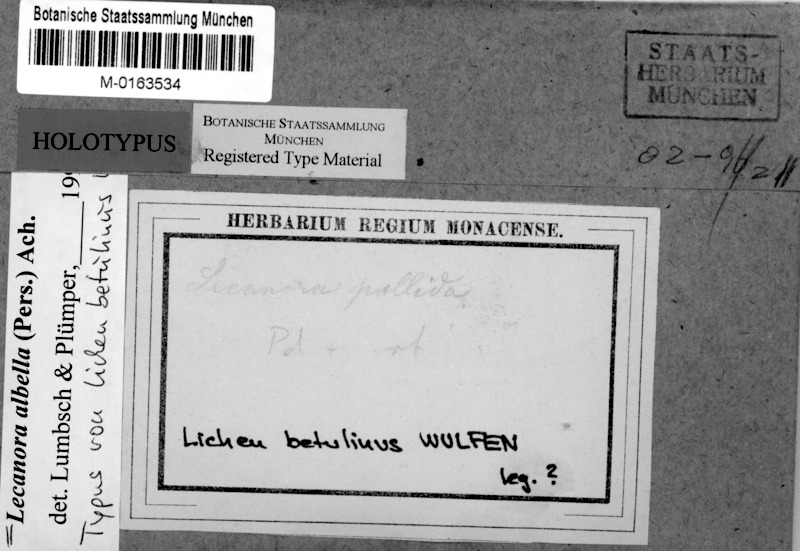 Botanische Staatssammlung München
M-0163534
STAATS-
HERBARIUM
MÜNCHEN
HOLOTYPUS
BOTANISCHE STAATSSAMMLUNG
MÜNCHEN
Registered Type Material
02-96/211
HERBARIUM REGIUM MONACENSE.
Lecanora pallida
Pd + rot
Lichen betulinus WULFEN
leg. ?
= Lecanora albella (Pers.) Ach.
det. Lumbsch & Plümper, 19
Typus von Lichen betulinus